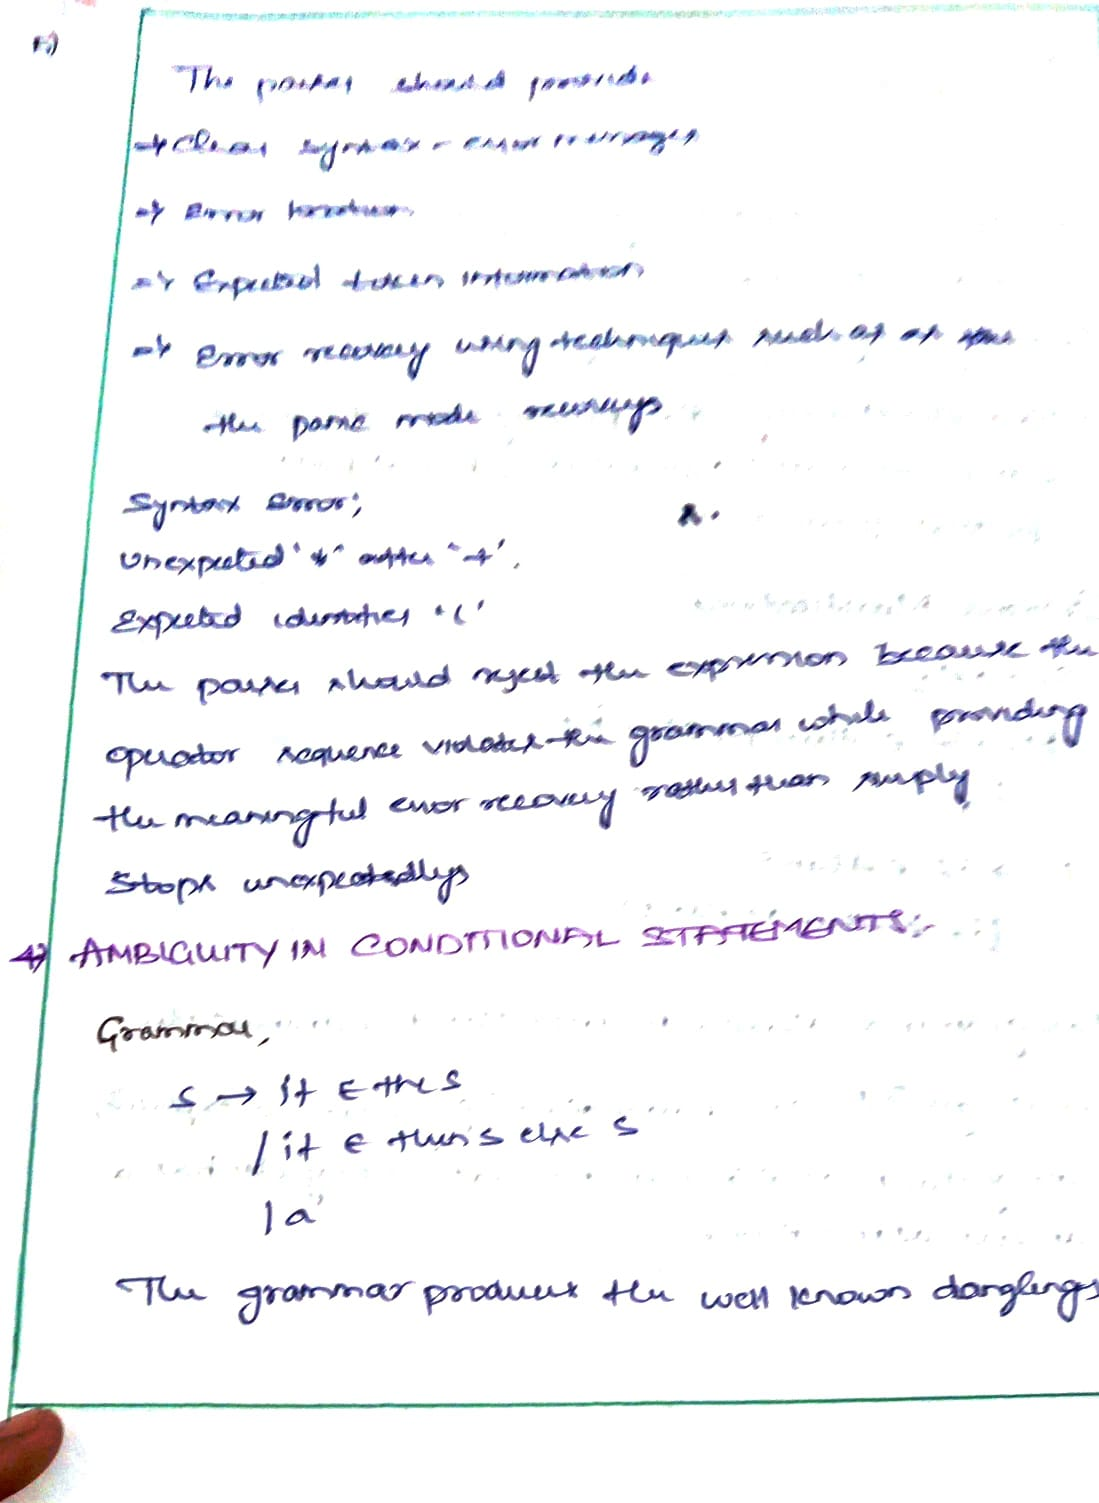 The parser should provide
→ Clear syntax - error messages
→ Error location
→ Expected token information
→ Error recovery using techniques such as
the panic mode recoverys
Syntax Error;
Unexpected '*' after '+'.
Expected identifier '('
The parser should reject the expression because the
operator sequence violates the grammar while providing
the meaningful error recovery rather than simply
Stops unexpectedlys
4) AMBIGUITY IN CONDITIONAL STATEMENTS:-
Grammar,
S → if E the S
/ if E then S else S
| a
The grammar produces the well known danglings